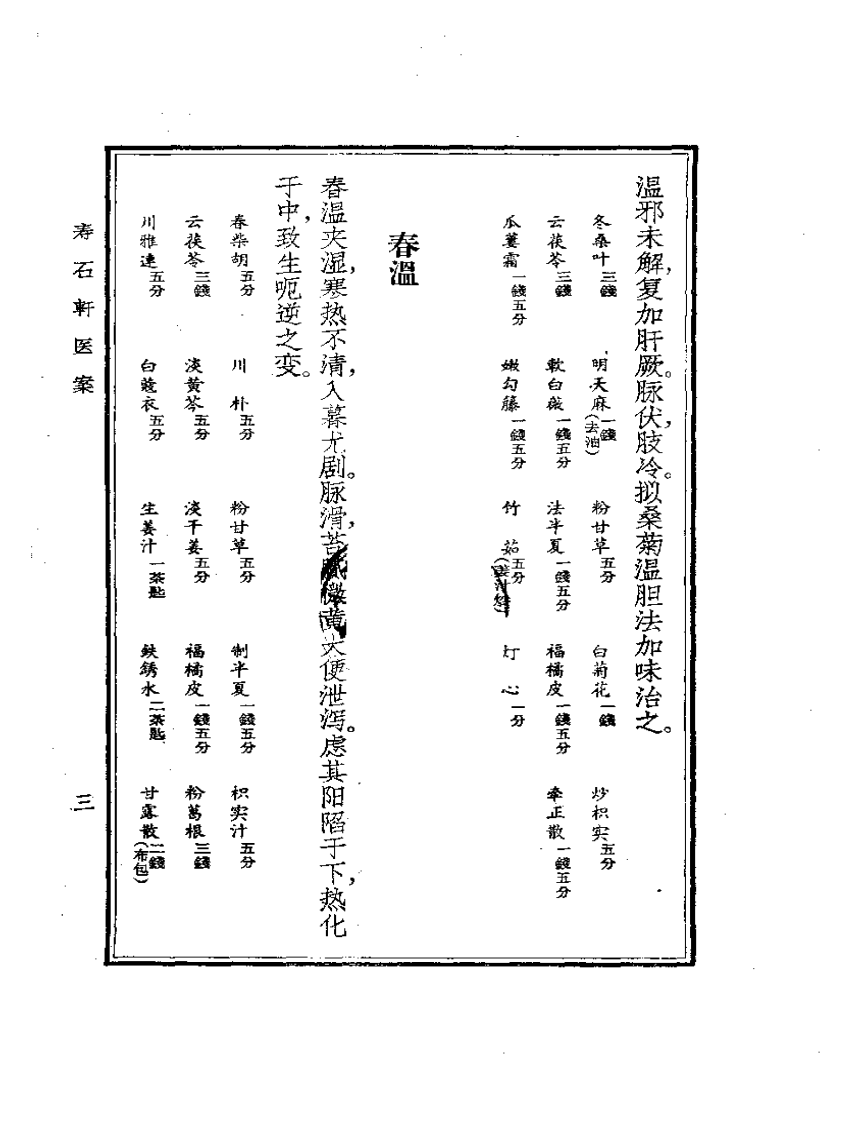 温邪未解,复加肝厥。脉伏,肢冷。拟桑菊温胆法加味治之。
冬桑叶三錢 明天麻一錢(去油) 粉甘草五分 白菊花一錢 炒枳实五分
云茯苓三錢 軟白薇一錢五分 法半夏一錢五分 福橘皮一錢五分 牵正散一錢五分
瓜蒌霜一錢五分 嫩勾藤一錢五分 竹茹五分 灯心一分
春溫
春温夹湿,寒热不清,入暮尤剧。脉滑,苔腻微黄,大便泄泻。虑其阳陷于下,热化
于中,致生呃逆之变。
春柴胡五分 川朴五分 粉甘草五分 制半夏一錢五分 枳实汁五分
云茯苓三錢 淡黄芩五分 淡干姜五分 福橘皮一錢五分 粉葛根三錢
川雅連五分 白蔻衣五分 生姜汁一茶匙 鉄銹水二茶匙 甘露散二錢(布包)
寿石軒医案
三